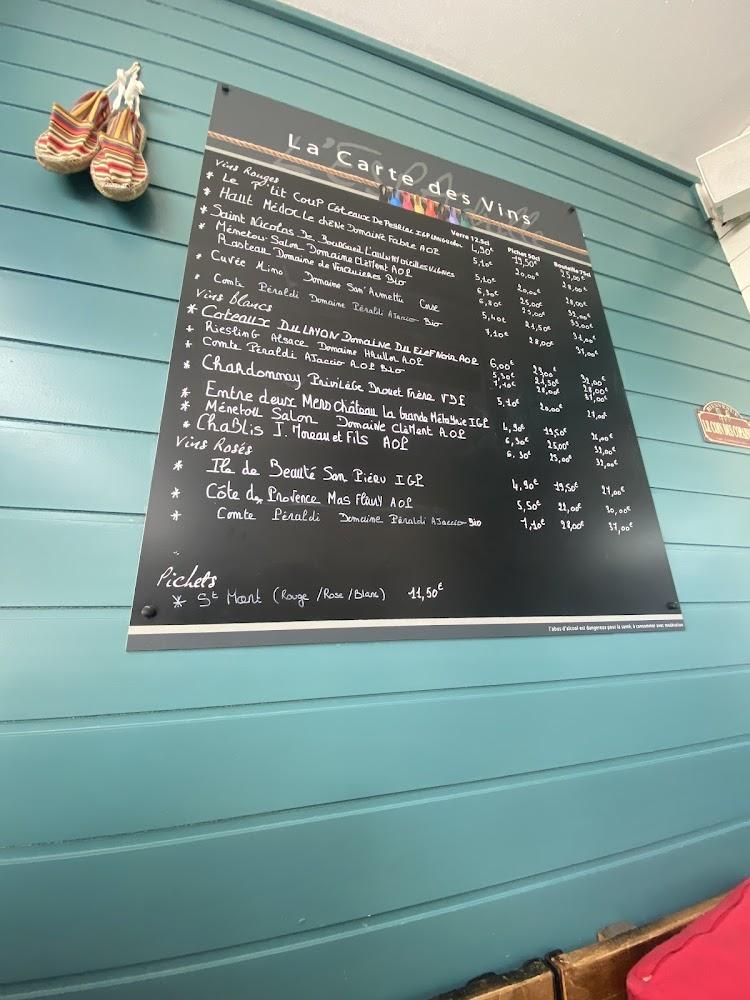 La Carte des Vins
Verre 12.5cl Pichet 50cl Bouteille 75cl
Vins Rouges
* Le P'tit Coup Coteaux De Peyriac IGP 4,90€ 19,50€ 25,00€
* Haut Médoc Le chêne Domaine Fabre AOP 5,10€ 20,00€ 28,00€
* Saint Nicolas De Bourgueil vieilles vignes 5,10€ 20,00€ 28,00€
* Ménetou Salon Domaine Clément AOP 6,30€ 25,00€ 32,00€
Rasteau Domaine de Verquières Bio 6,80€ 33,00€
* Cuvée Mino Domaine San' Armettu Corse 5,40€ 21,50€ 31,00€
* Comte Péraldi Domaine Péraldi Ajaccio Bio 7,10€ 28,00€ 37,00€
Vins blancs
* Coteaux Du Layon Domaine Du Fief Noir AOP 6,00€ 32,00€
* Riesling Alsace Domaine AOP 5,30€ 21,50€ 28,00€
* Comte Péraldi Ajaccio AOP Bio 7,10€ 28,00€ 37,00€
* Chardonnay Privilège Drouet Frère VDF 5,10€ 20,00€
* Entre deux Mers Château La Grande Métairie IGP 4,90€ 19,50€
* Ménetou Salon Domaine Clément AOP 6,30€ 25,00€ 32,00€
* Chablis J. Moreau et Fils AOP 6.30€ 25,00€ 32,00€
Vins Rosés
* Ile de Beauté San Piéru IGP 4,90€ 19,50€ 24,00€
* Côte de Provence Mas Fleury AOP 5,50€ 22,00€ 30,00€
* Comte Péraldi Domaine Péraldi Ajaccio Bio 7,10€ 28,00€ 37,00€
Pichets
* St Mont (Rouge /Rose /Blanc) 11,50€
l'abus d'alcool est dangereux pour la santé, à consommer avec modération